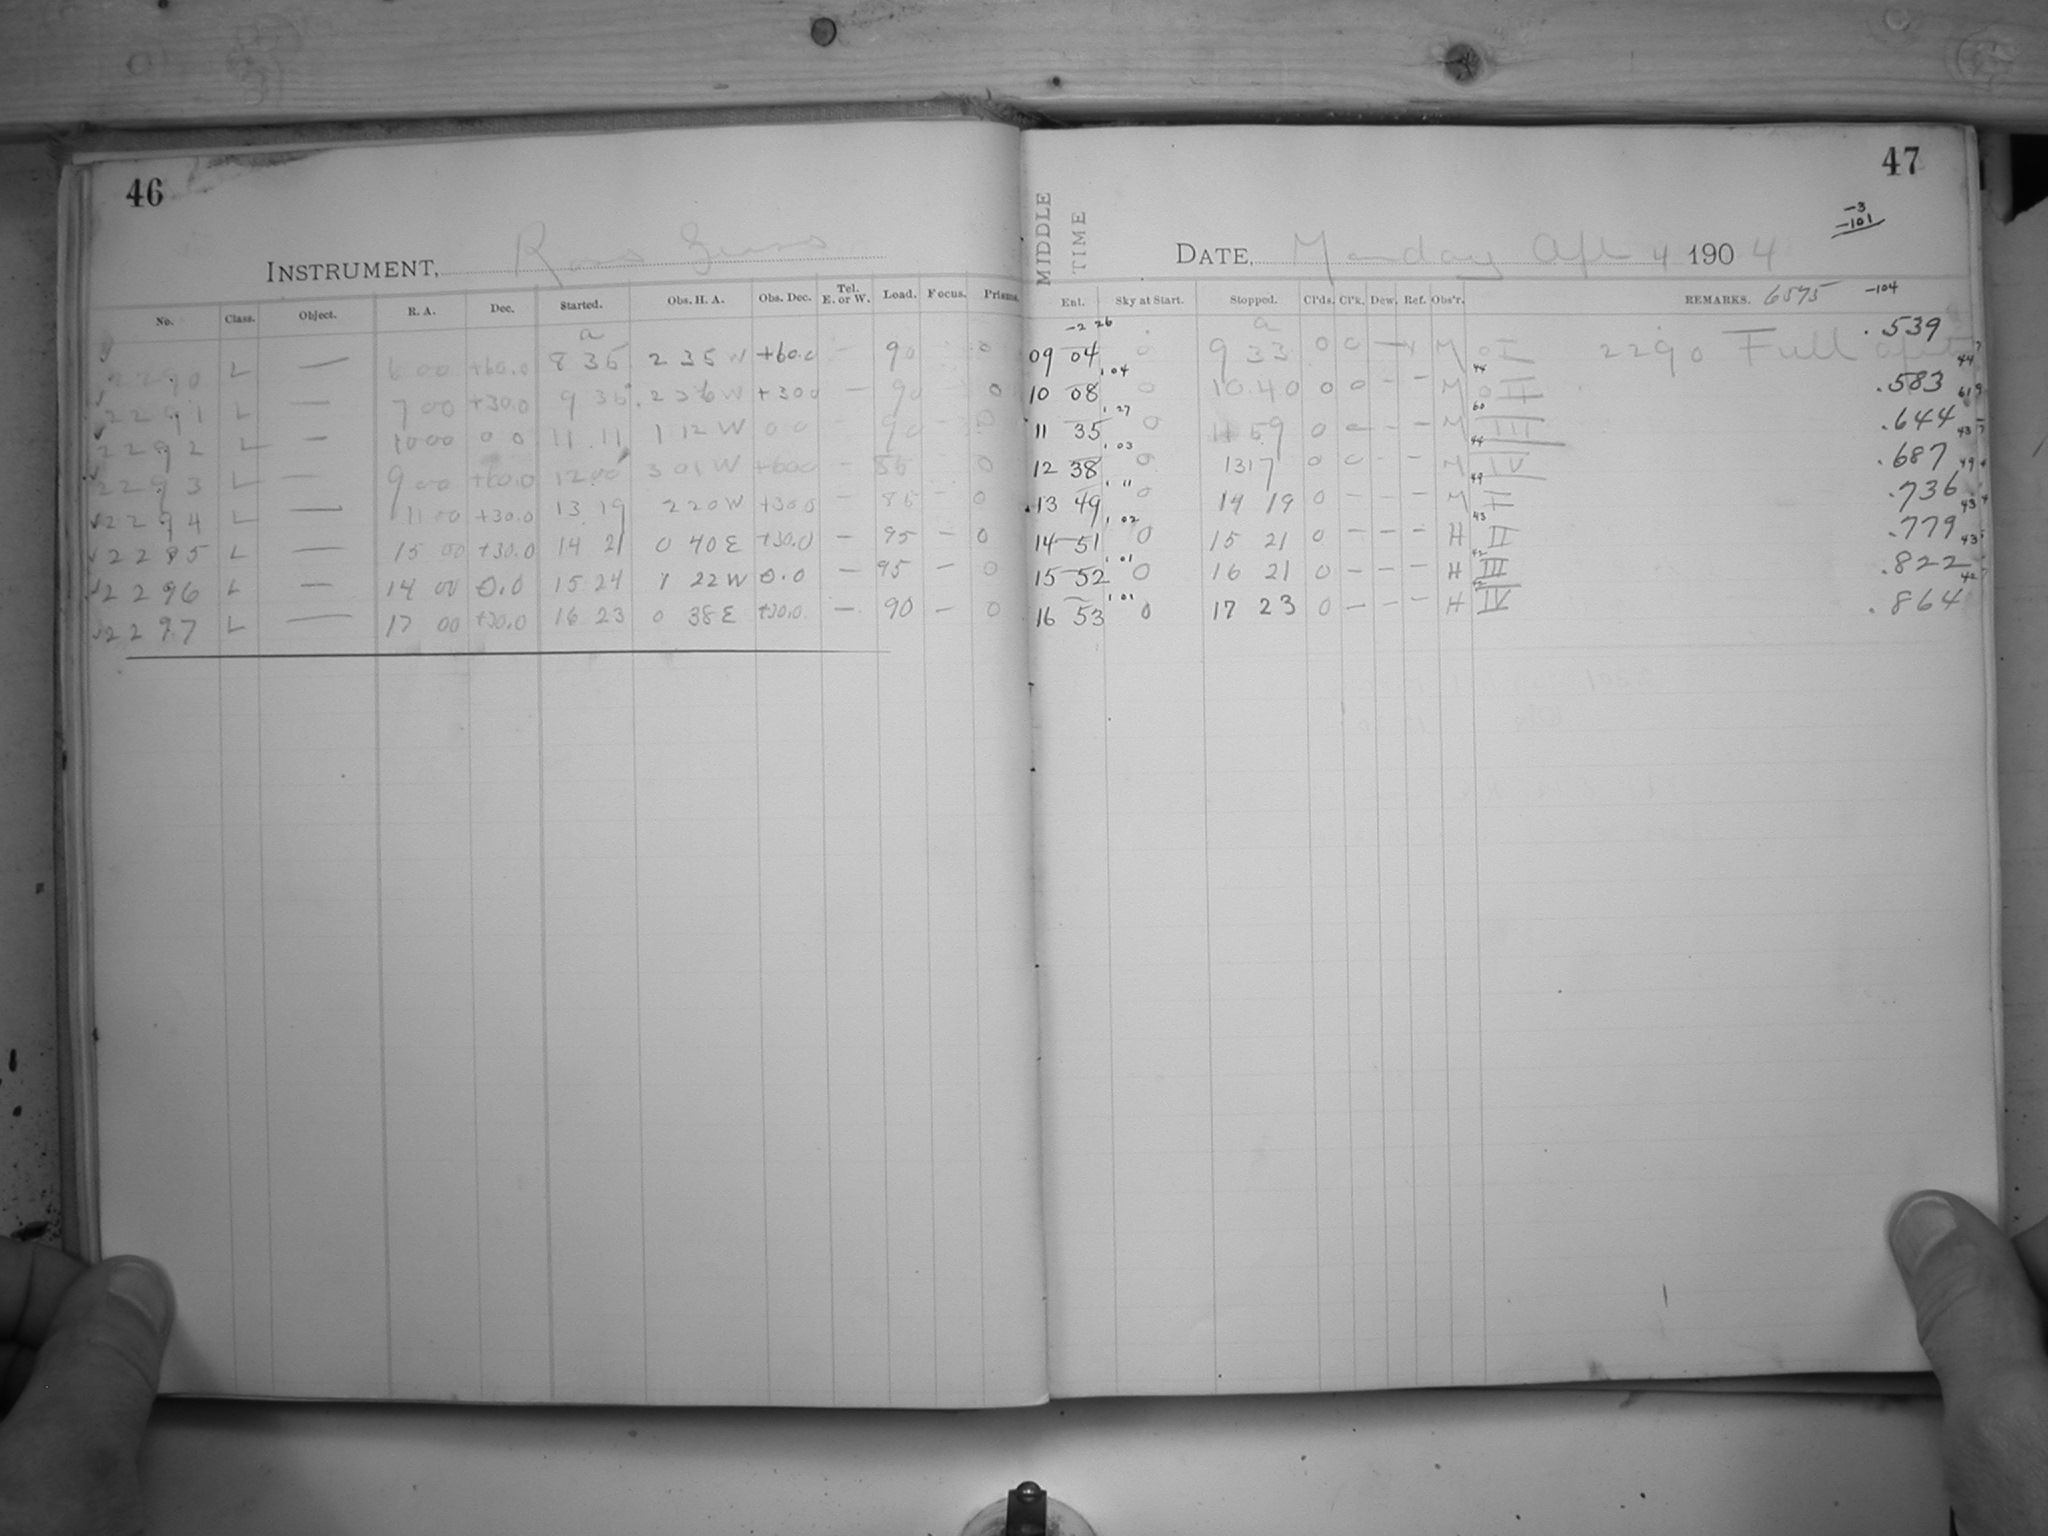 46
INSTRUMENT, Ross Zeiss
No. Class. Object. R. A. Dec. Started. Obs. H. A. Obs. Dec. Tel. E. or W. Load. Focus. Prisms.
a
2290 L — 6 00 +60.0 8 35 2 35 W +60.0 — 90 — 0
2291 L — 7 00 +30.0 9 36 2 36 W +30 0 — 90 — 0
2292 L — 10 00 0 0 11 11 1 12 W 0 0 — 90 — 0
2293 L — 9 00 +60.0 12 00 3 01 W +60 0 — 85 — 0
2294 L — 11 00 +30.0 13 19 2 20 W +30.0 — 85 — 0
2285 L — 15 00 +30.0 14 21 0 40 E +30.0 — 95 — 0
2296 L — 14 00 0.0 15 24 1 22 W 0.0 — 95 — 0
2297 L — 17 00 +30.0 16 23 0 38 E +30.0 — 90 — 0
47
-3
-101
MIDDLE TIME
DATE, Monday Apr 4 1904
Ent. Sky at Start. Stopped. Cl'ds. Cl'k. Dew. Ref. Obs'r. REMARKS. 6575 -104
-2 26 a
09 04 0 9 33 0 0 — M I 2290 Full .539
1 04 44 44
10 08 0 10 40 0 0 - - M II .583
1 27 60 61
11 35 0 11 59 0 - - - M III .644
1 03 44 43
12 38 0 13 17 0 0 - - M IV .687
1 11 49 49
13 49 0 14 19 0 - - - M I .736
1 02 43 43
14 51 0 15 21 0 - - - H II .779
1 01 42 43
15 52 0 16 21 0 - - - H III .822
1 01 42 42
16 53 0 17 23 0 - - - H IV .864